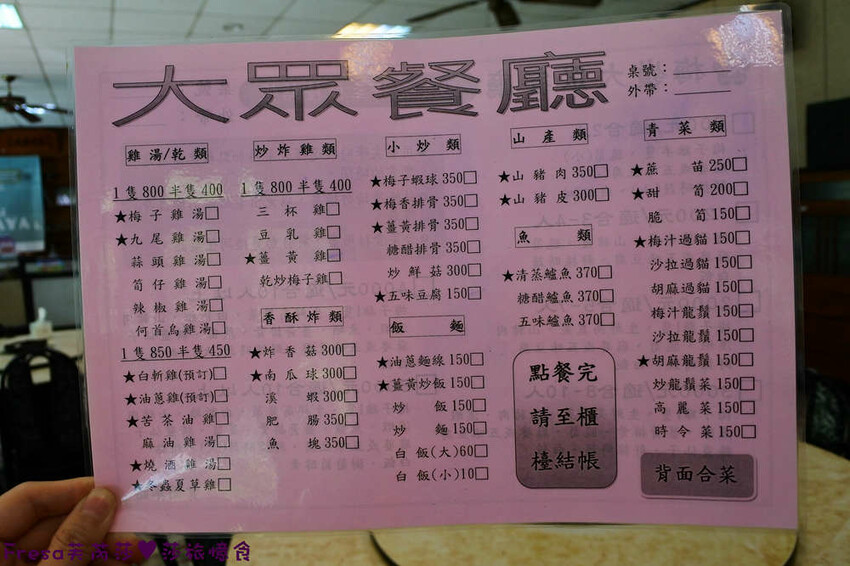 大眾餐廳
桌號：
外帶：
雞湯/乾類
1隻800半隻400
★梅子雞湯□
★九尾雞湯□
蒜頭雞湯□
筍仔雞湯□
辣椒雞湯□
何首烏雞湯□
1隻850半隻450
★白斬雞(預訂)□
★油蔥雞(預訂)□
★苦茶油雞□
麻油雞湯□
★燒酒雞湯□
★冬蟲夏草雞□
炒炸雞類
1隻800半隻400
三杯雞□
豆乳雞□
★薑黃雞□
乾炒梅子雞□
香酥炸類
★炸香菇300□
★南瓜球300□
溪蝦300□
肥腸350□
魚塊350□
小炒類
★梅子蝦球350□
★梅香排骨350□
★薑黃排骨350□
糖醋排骨350□
炒鮮菇300□
★五味豆腐150□
飯麵
★油蔥麵線150□
★薑黃炒飯150□
炒飯150□
炒麵150□
白飯(大)60□
白飯(小)10□
山產類
★山豬肉350□
★山豬皮300□
魚類
★清蒸鱸魚370□
糖醋鱸魚370□
五味鱸魚370□
點餐完
請至櫃
檯結帳
青菜類
★蔗苗250□
★甜筍200□
脆筍150□
★梅汁過貓150□
沙拉過貓150□
胡麻過貓150□
梅汁龍鬚150□
沙拉龍鬚150□
★胡麻龍鬚150□
炒龍鬚菜150□
高麗菜150□
時令菜150□
背面合菜
Fresa芙蕊莎♥莎旅憶食